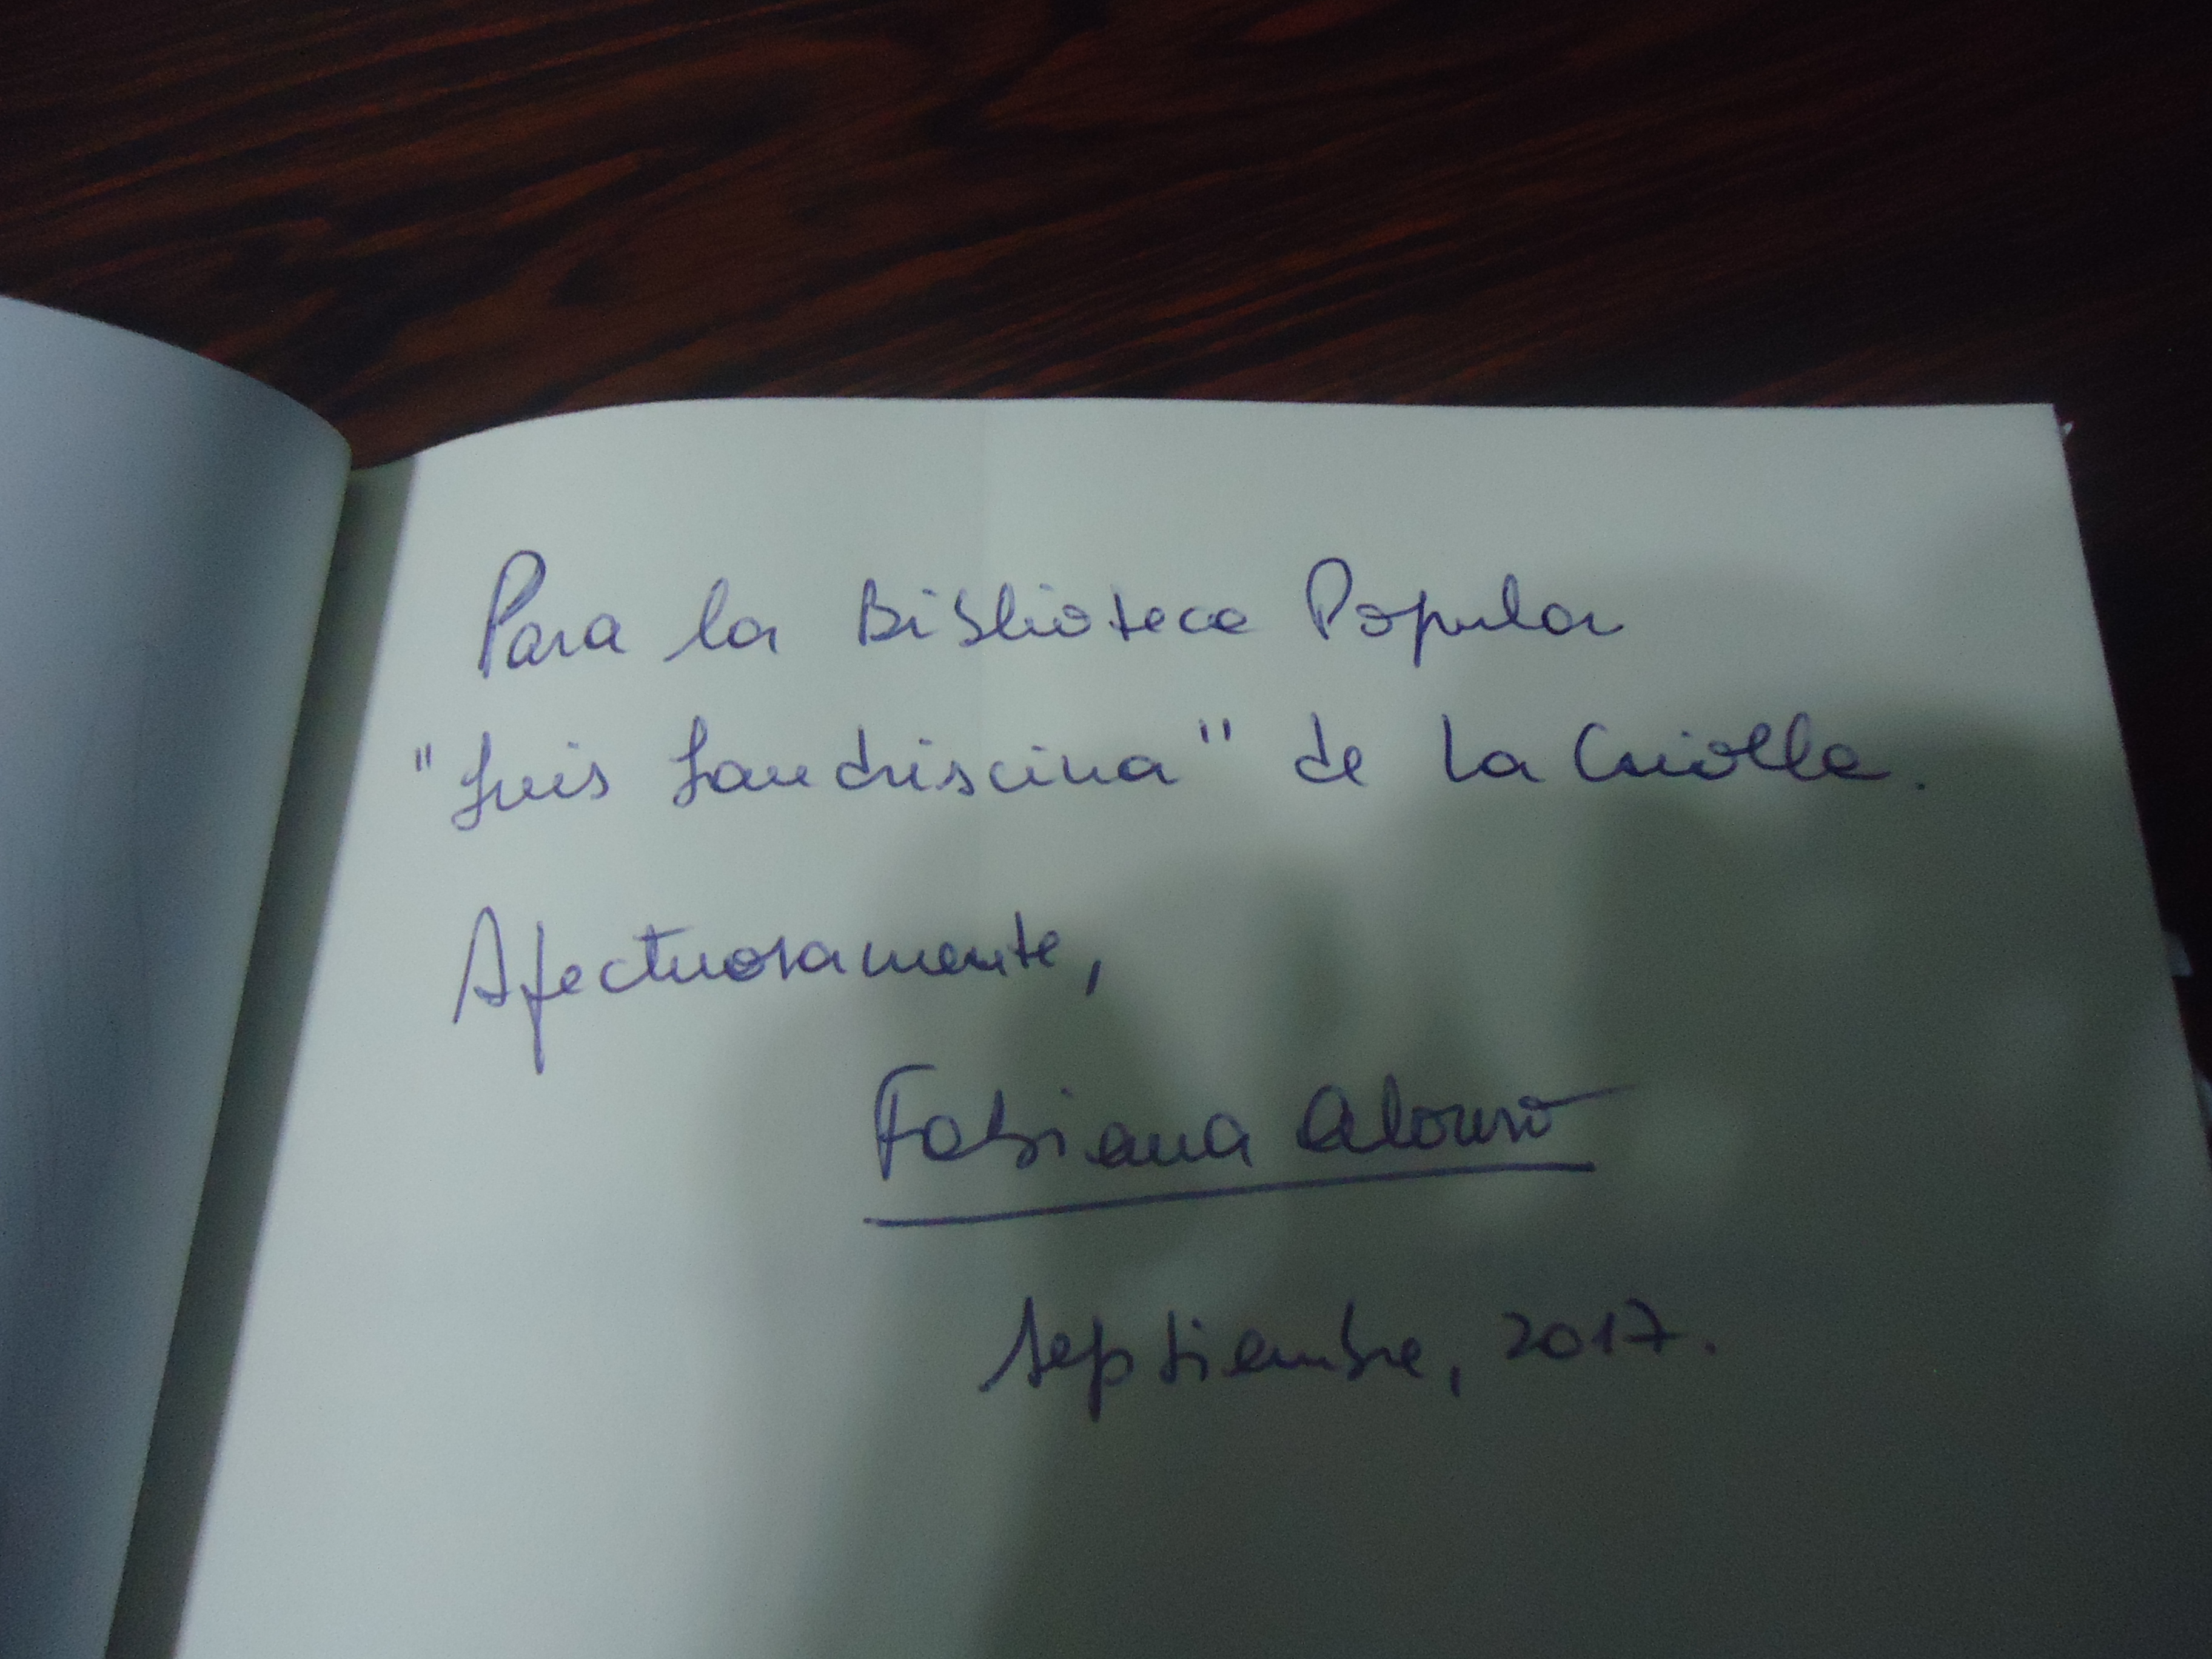 Para la Biblioteca Popular
"Luis Landriscina" de La Criolla.
Afectuosamente,
Fabiana Alonso
Septiembre, 2017.